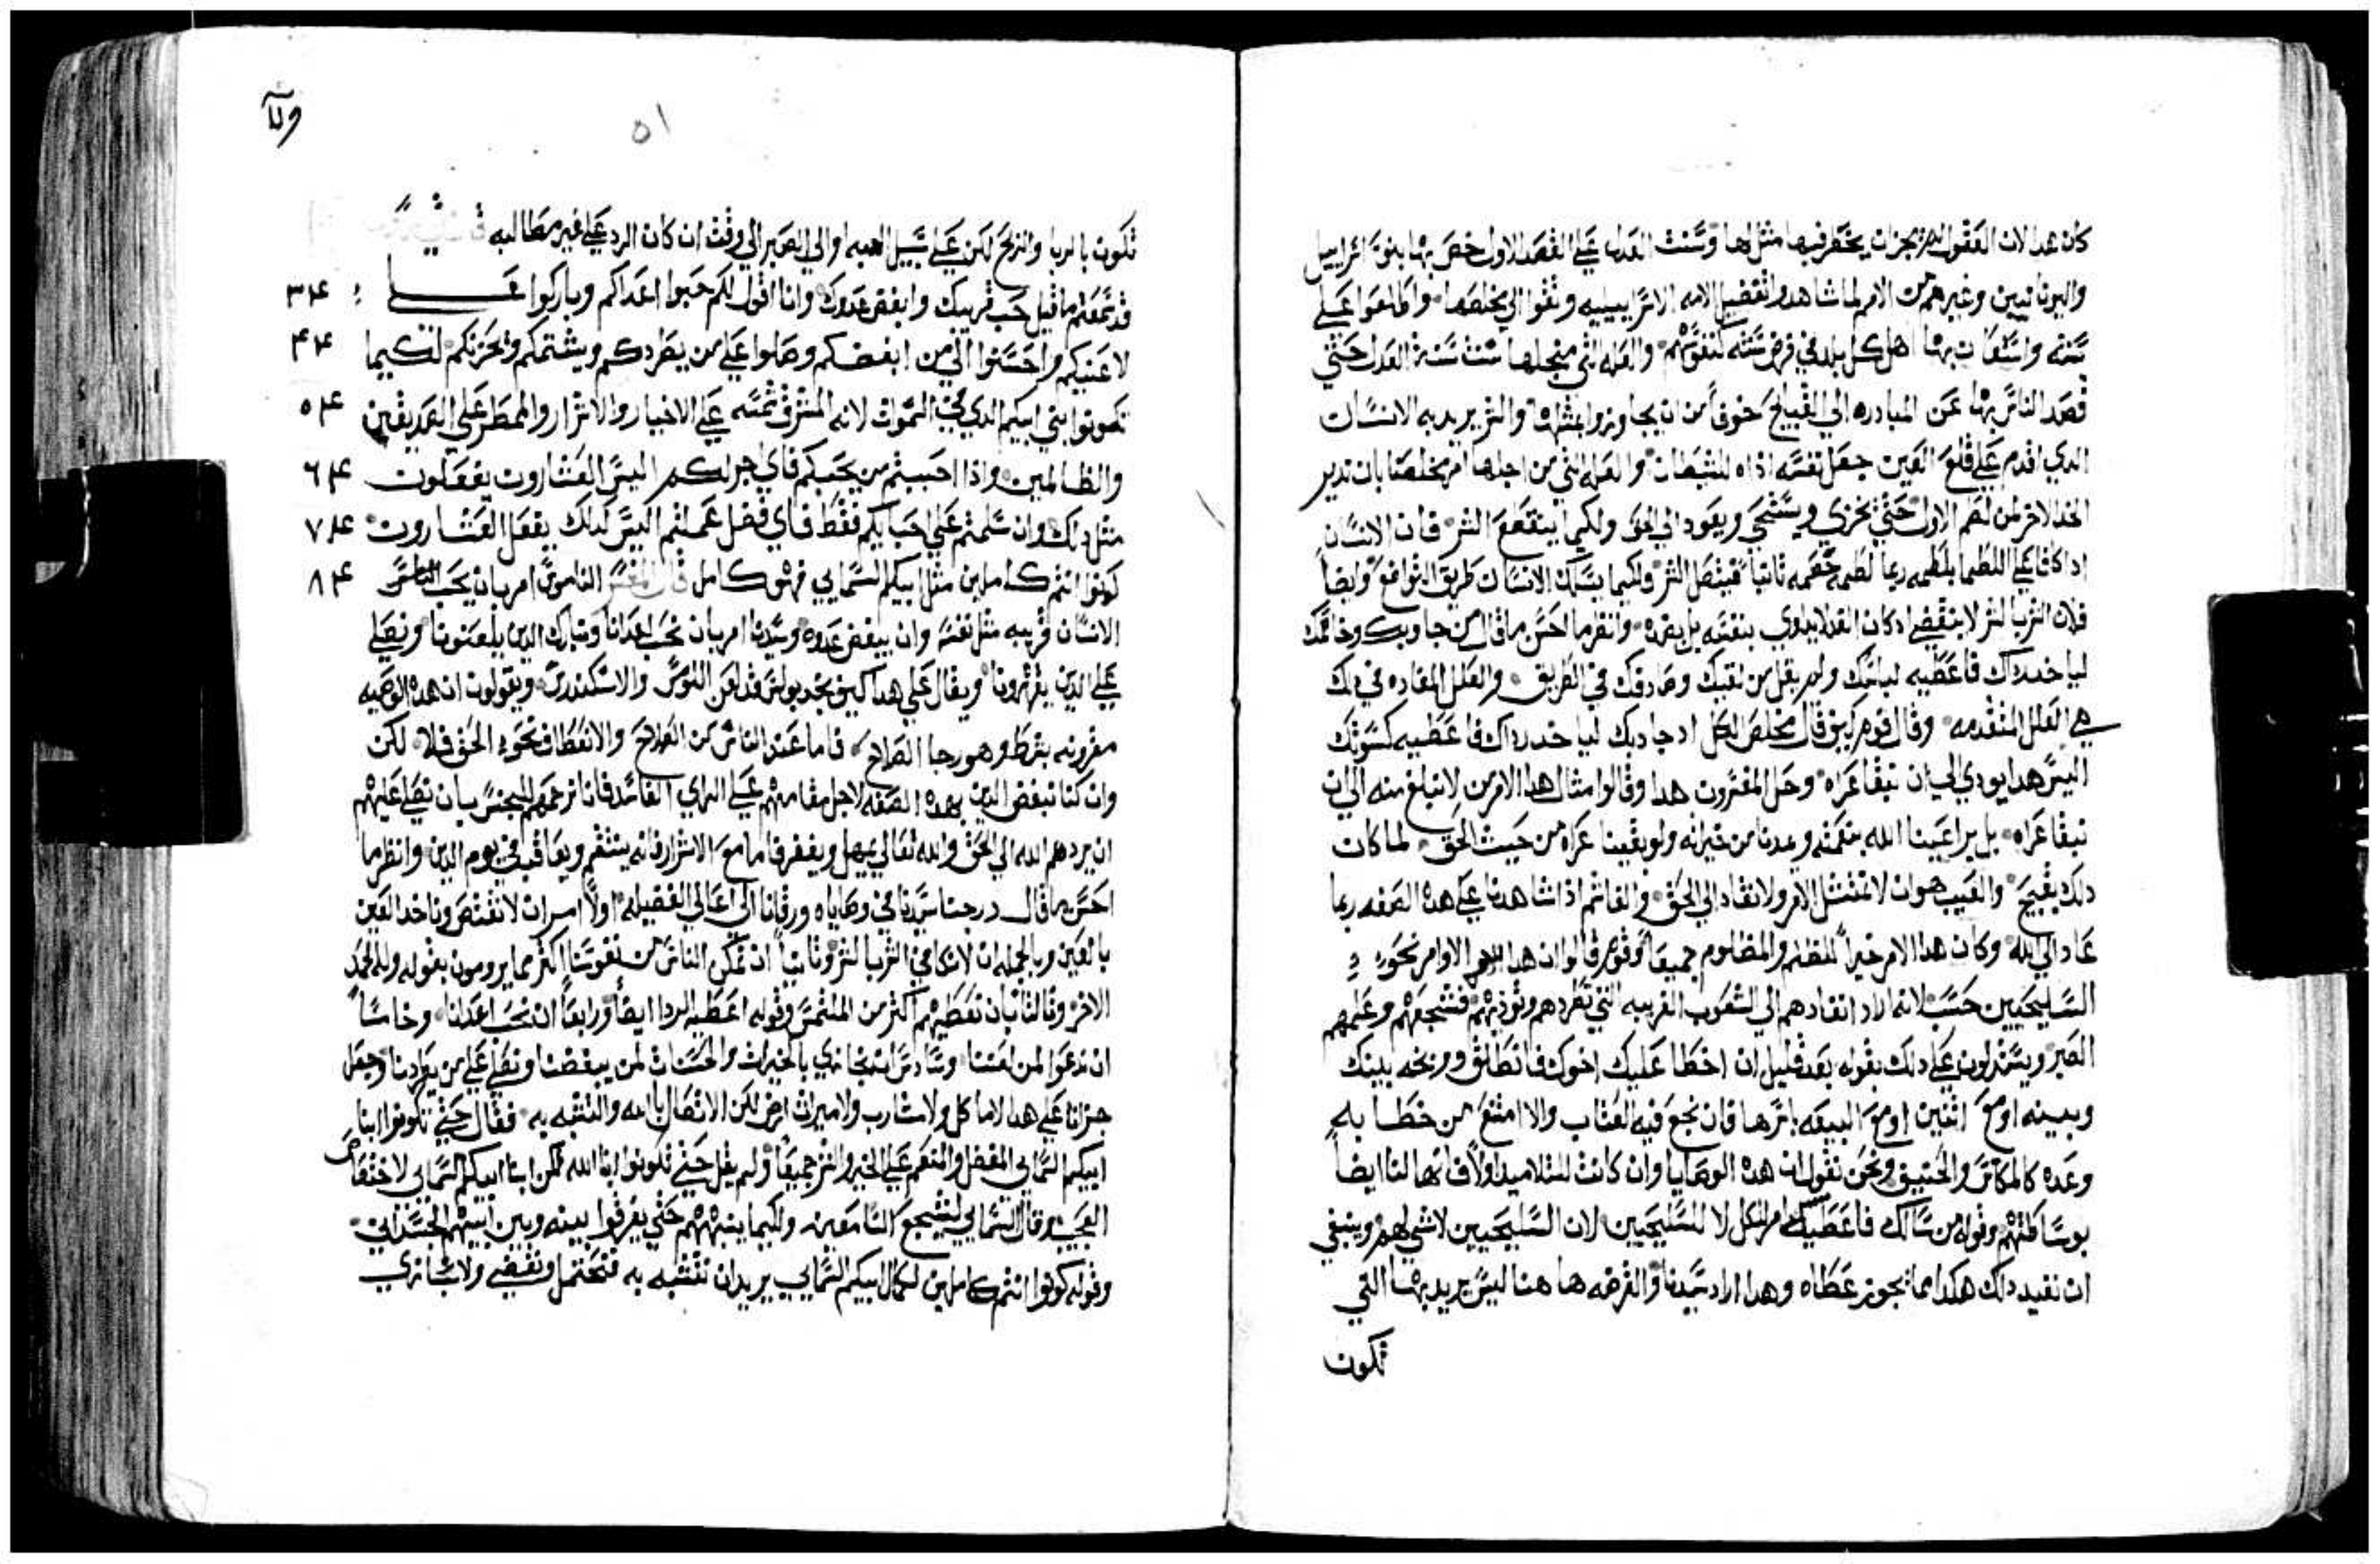 كان هدا لان العقول لم تجزان يحتقر فيها مثل لها وسنت العداله علي القصد الاول خص بها بنو اسراييل
واليونانيين وغيرهم من الامم لما شاهدوا تفضيل الامه الاسراييليه وتقوا الي يخلصها واطلعوا علي
سننه واستعان بها اهل كل بلد في فرض سننه لنفوسهم والعله التي من اجلها سنت سنة العدل حتي
قصد الناس بها عن المبادره الي القبايح خوفاً من ان يجاوزوا بمثلها والشر يريد به الانسان
الدي اقدم علي قلع العين جعل نفسه اداه للشيطان والعله التي من اجلها امر مخلصنا بان ندير
الخد الاخر لمن لطم الاول حتي يخزي ويستحي ويعود الي الحق ولكيما ينقطع الشر فان الانسان
ادا كافا علي اللطما بلطمه ربما لطمه خصمه ثانياً فيتصل الشر ولكيما يسلك الانسان طريق التواضع وايضاً
فلان الشر بالشر لا ينقضي ادكان الفعل لا يداوي بنفسه بل بضده وانظر ما احسن ما قال من جا وبك وخاصمك
لياخد رداك فاعطيه لباسك ولم يقل من لقيك وصادفك في الطريق والعلل المفاده في دلك
هي العلل المتقدمه وقال قوم كيف قال مخلص الكل اد جادبك لياخد رداك فاعطيه كسوتك
اليس هدا يودي الي ان نبقا عراه وحل المفسرون هدا وقالوا مثال هدا الامر من لا نبلغ منه الي ان
نبقا عراه بل يراعينا الله بنعمته وعدنا من خيراته ولو بقينا عراه من حيث الحق لما كان
دلك بقبيح والعيب هو ان لا نمتثل الامر ولا ننقاد الي الحق والغاشم اذا شاهدنا علي هده الصفه ربما
عاد الي الله وكان هدا الامر خيراً للظالم والمظلوم جميعاً وقوم قالوا ان هدا الاوامر نحو
السليحيين حسب لانه اراد انفادهم الي الشعوب الغريبه التي تطردهم وتوديهم فشجعهم وعلمهم
الصبر ويستدلون علي دلك بقوله بعد قليل ان اخطا عليك اخوك فانطلق ووبخه بينك
وبينه او مع اثنين او مع البيعه باسرها فان نجع فيه العتاب والا امتنع من خطابه
وعده كالماكس والحنيف ونحن نقول ان هده الوصايا وان كانت للتلاميد اولاً فانها لنا ايضاً
بوساطتهم وقوله من سالك فاعطيه امر للكل لا للسليحيين لان السليحيين لا شي لهم وينبغي
ان نفيد دلك هكدا مما يجوز عطاه وهدا اراد سيدنا والقرضه ها هنا ليس يريد بها التي
تكون
ولا
٥١
تكون بالربا والربح لكن علي سبيل الهبه او الي الصبر الي وقت ان كان الرد علي غير مطالبه
٤٣ قد سمعتم ما قيل حب قريبك وابغض عدوك وانا اقول لكم حبوا اعداكم وباركوا علـــي
٤٤ لاعنيكم واحسنوا الي من ابغضكم وصلوا علي من يطردكم ويشتمكم ويحزنكم لكيما
٤٥ تكونوا بني ابيكم الدي في السموات لانه المشرق شمسه علي الاخيار والاشرار والممطر علي الصديقين
٤٦ والظالمين واذا احببتم من يحبكم فاي اجر لكم اليس العشارون يفعلون
٤٧ مثل دلك وان سلمتم علي احبايكم فقط فاي فضل عملتم اليس كدلك يفعل العشارون
٤٨ كونوا انتم كاملين مثل ابيكم السمايي فهو كامل قال المفسر الناموس امر بان يحب الناس
الانسان قريبه مثل نفسه وان يبغض عدوه وسيدنا امر بان نحب اعدانا ونبارك الدين يلعنونا ونصلي
علي الدين يقهرونا ويقال علي هدا كيف نجد بولس قد لعن التومس والاسكندرس ويقولون ان هده الوصيه
مقرونه بشرط وهو رجا الصلاح فاما عند الناس من الصلاح والانعطاف نحو الحق فلا لكن
وان كنا نبغض الدين بهده الصفه لاجل مقامهم علي الراي الفاسد فانا نرحمهم للجنس بان نصلي عليهم
ان يردهم الله الي الحق والله تعالي يمهل ويغفر فاما مع الاشرار فانه ينتقم ويعاقب في يوم الدين وانظر ما
احسن ما قال درجنا سيدنا في وصاياه ورقانا الي اعالي الفضيله اولاً امر ان لا نقتص وناخد العين
بالعين وبالجمله ان لا نكافي الشر بالشر وثانياً ان نمكن الناس من نفوسنا اكثر مما يرومون بقوله وله الخد
الاخر وثالثاً بان نعطيهم اكثر من الملتمس وقوله اعطيه الردا ايضاً ورابعاً ان نحب اعدانا وخامساً
ان ندعوا لمن لعننا وسادساً ان نجازي بالخيرات والحسنات لمن يبغضنا ونصلي علي من يعادينا وجعل
جزانا علي هدا لا ماكل ولا مشارب ولا ميراث ارض لكن الاتصال بالله والتشبه به فقال حتي تكونوا ابنا
ابيكم السمايي المفضل والمنعم علي الخير والشر جميعاً ولم يقل حتي تكونوا ابنا الله لكن ابنا ابيكم السمايي لاختصاص
العجيب وقال السمايي ليشجع السامعين ولكيما ينبههم حتي يفرقوا بينه وبين ابيهم الجسداني
وقوله كونوا انتم كاملين لكمال ابيكم السمايي يريد ان نتشبه به فنحتمل ونفيض ولا نجازي